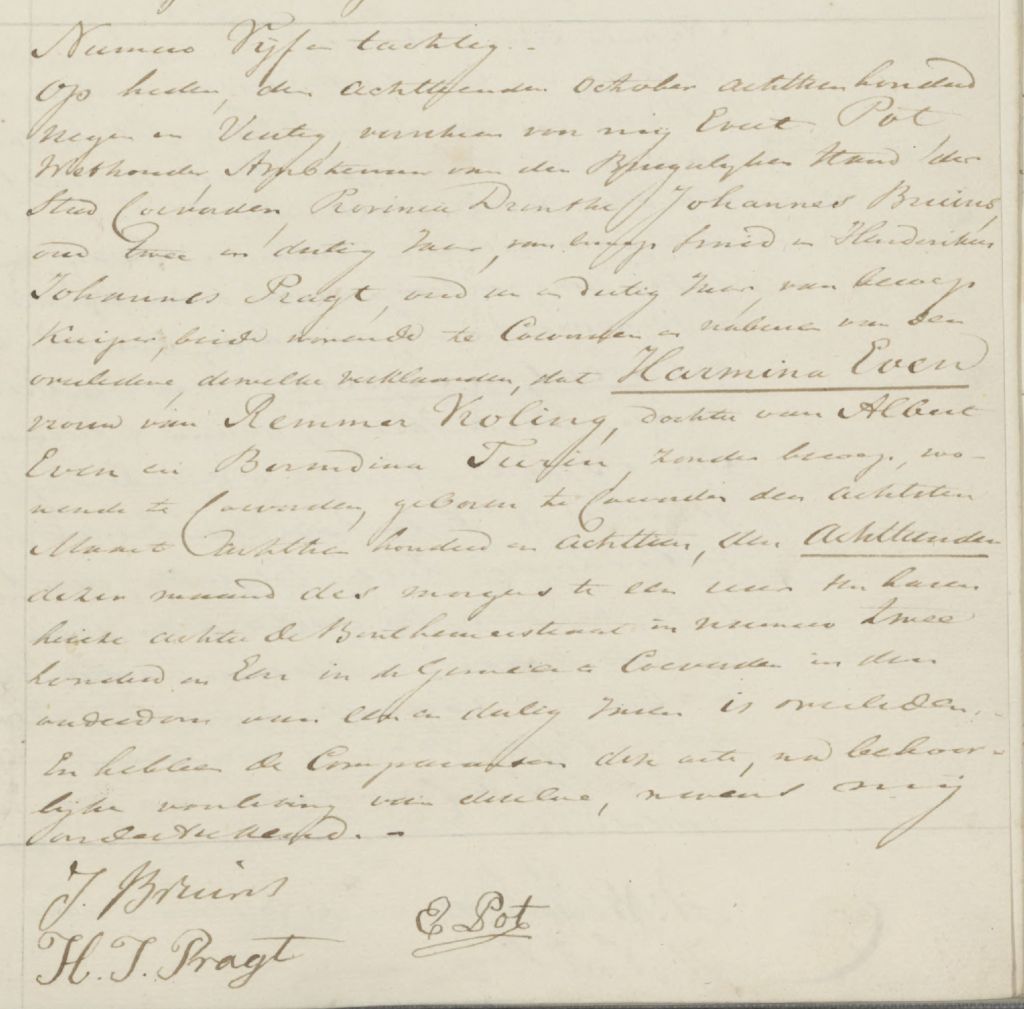 Numero Vijf en tachtig.-
Op heden, den achttienden October achttienhonderd
negen en Veertig, verscheen voor mij Evert Pot,
Wethouder, Ambtenaar van den Burgerlijken Stand der
Stad Coevorden, Provincie Drenthe, Johannes Bruins,
oud twee en dertig Jaar, van beroep smid en Hendrikus
Johannes Pragt, oud een en dertig Jaar, van beroep
Kuiper, beide wonende te Coevorden en naburen van den
overledene, dewelke verklaarden, dat Harmina Even
vrouw van Remmer Koling, dochter van Albert
Even en Berendina Turin, zonder beroep, wo-
nende te Coevorden, geboren te Coevorden den achtsten
Maart Achttien honderd en achttien, den achttienden
dezer maand des morgens te een uur ten haren
huize achter de Bentheimerstraat in numero twee
honderd en Een in de Gemeente Coevorden in den
ouderdom van een en dertig Jaren is overleden.-
En hebben de Comparanten deze acte, na behoor-
lijke voorlezing van dezelve, nevens mij
onderteekend.-
J. Bruins
E Pot
H. J. Pragt